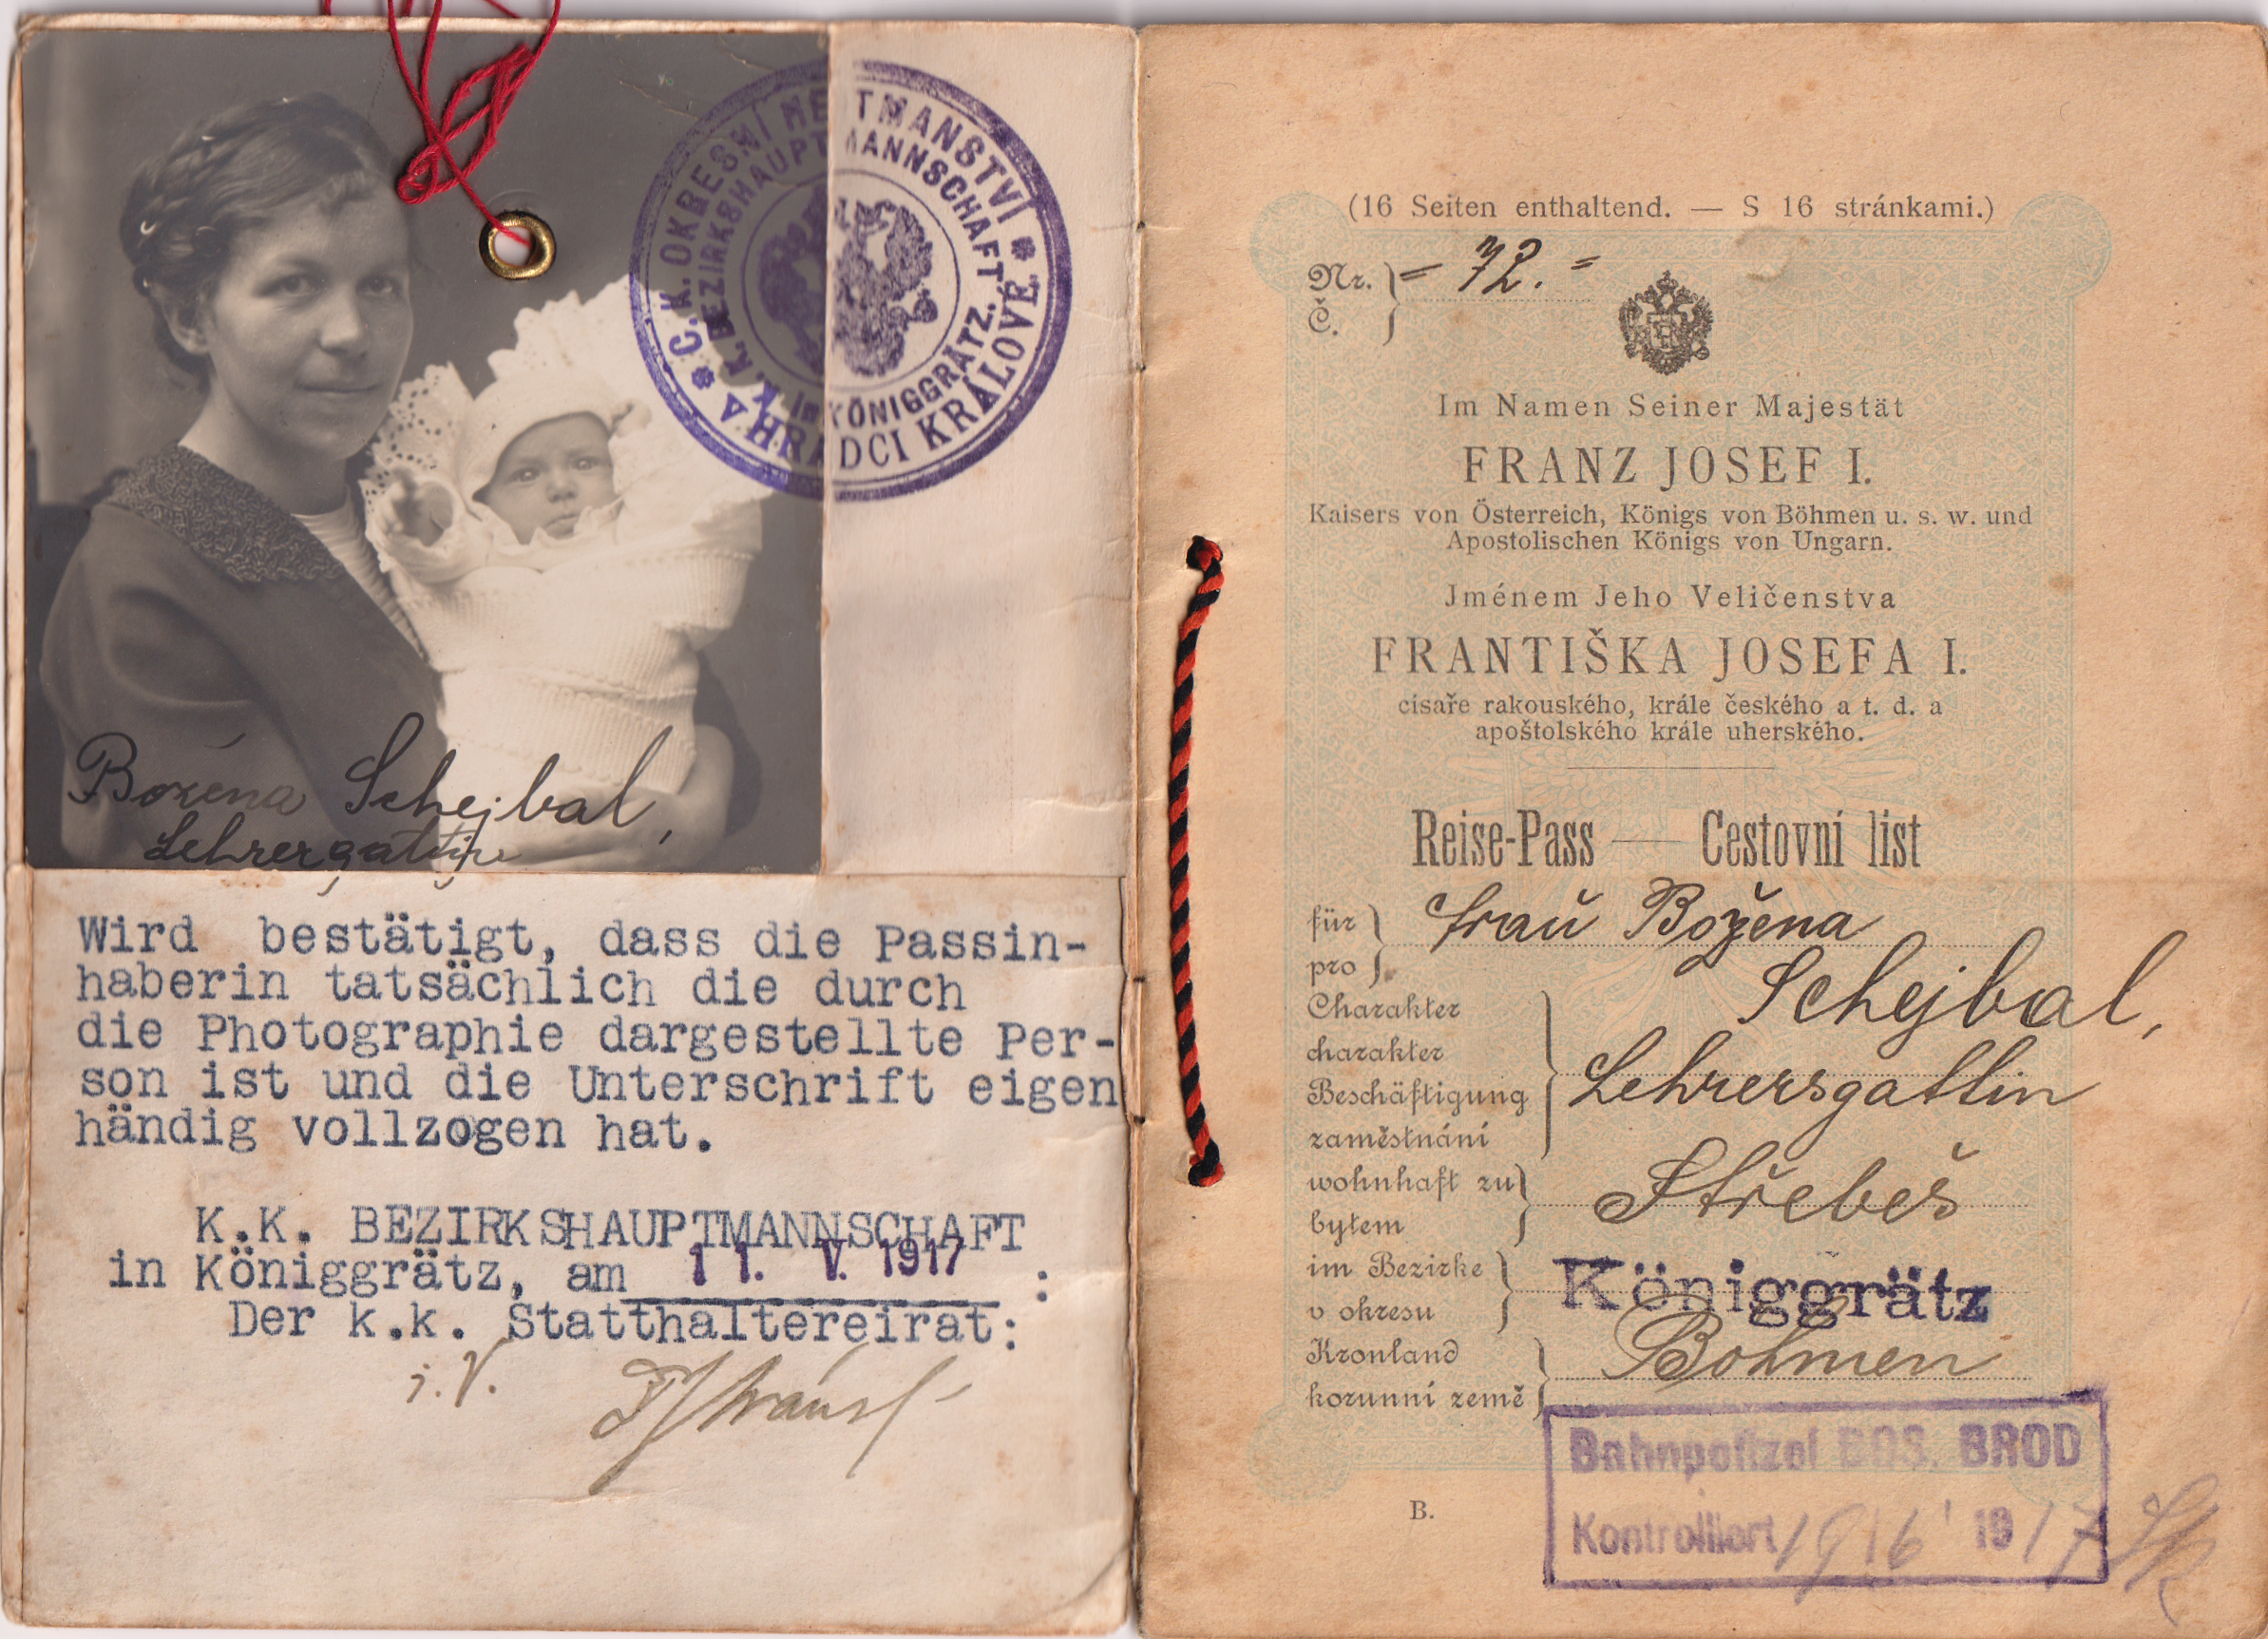 C. K. OKRESNÍ HEJTMANSTVÍ
V HRADCI KRÁLOVÉ.
K. K. BEZIRKSHAUPTMANNSCHAFT
im KÖNIGGRÄTZ.
Božena Schejbal,
Lehrergattin
Wird bestätigt, dass die Passin-
haberin tatsächlich die durch
die Photographie dargestellte Per-
son ist und die Unterschrift eigen
händig vollzogen hat.
K.K. BEZIRKSHAUPTMANNSCHAFT
in Königgrätz, am 11. V. 1917 :
Der k.k. Statthaltereirat:
i.V.
(16 Seiten enthaltend. — S 16 stránkami.)
Nr. = 72. =
Č.
Im Namen Seiner Majestät
FRANZ JOSEF I.
Kaisers von Österreich, Königs von Böhmen u. s. w. und
Apostolischen Königs von Ungarn.
Jménem Jeho Veličenstva
FRANTIŠKA JOSEFA I.
císaře rakouského, krále českého a t. d. a
apoštolského krále uherského.
Reise-Pass — Cestovní list
für Frau Božena
pro
Schejbal,
Charakter
charakter
Beschäftigung Lehrersgattin
zaměstnání
wohnhaft zu Střebeš
bytem
im Bezirke Königgrätz
v okresu
Kronland Böhmen
korunní země
Bahnpolizei BOS. BROD
Kontrolliert 19/6 1917
B.